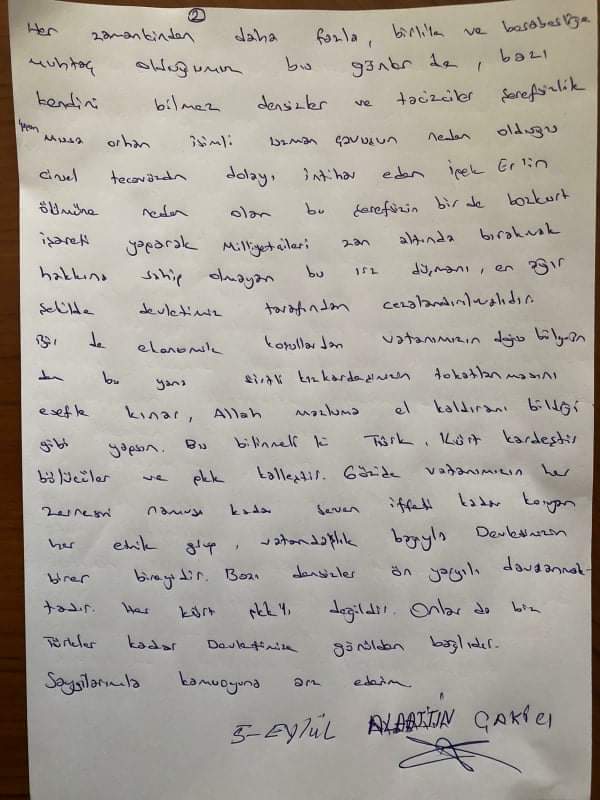 2
Her zamankinden daha fazla, birlik ve beraberliğe
muhtaç olduğumuz bu günler de, bazı
kendini bilmez densizler ve tacizciler şerefsizlik
Musa orhan isimli uzman çavuşun neden olduğu
cinsel tecavüzden dolayı, intihar eden ipek Er'in
ölümüne neden olan bu şerefsizin bir de bozkurt
işareti yaparak Milliyetçileri zan altında bırakmak
hakkına sahip olmayan bu ırz düşmanı, en ağır
şekilde devletimiz tarafından cezalandırılmalıdır.
Bir de ekonomik koşullardan vatanımızın doğu bölgesin
den bu yana kızkardeşimizin tokatlanmasını
esefle kınar, Allah mazluma el kaldıranı bildiği
gibi yapsın. Bu bilinmeli ki Türk, Kürt kardeştir
bölücüler ve pkk kalleştir. Gözide vatanımızın her
zerresini namusu kadar seven iffeti kadar koruyan
her etnik grup, vatandaşlık bağıyla Devletimizin
birer bireyidir. Bazı densizler ön yargılı davranmak-
tadır. Her kürt pkk'lı değildir. Onlar da biz
Türkler kadar Devletimize gönülden bağlıdır.
Saygılarımla kamuoyuna arz ederim.
5-EYLÜL ALAATTİN ÇAKICI